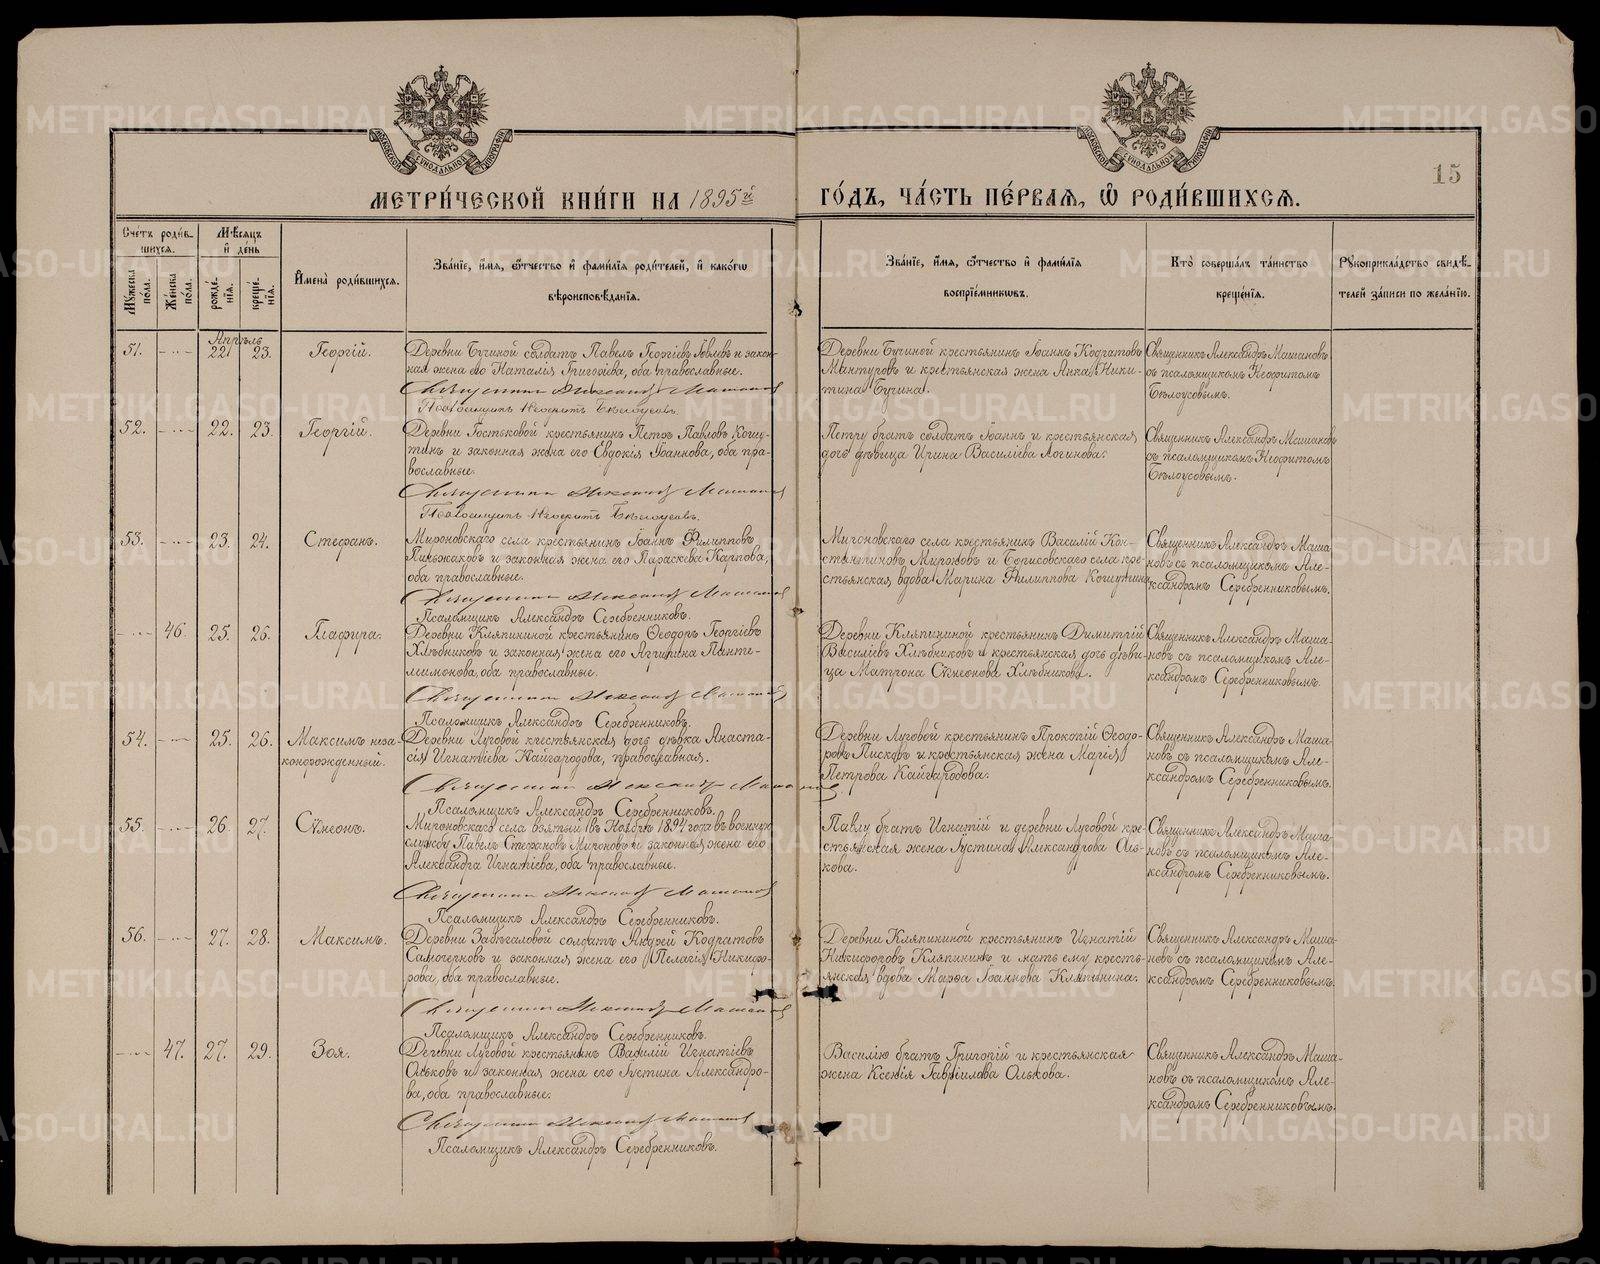 МЕТРИ́ЧЕСКОЙ КНИ́ГИ НА 1895й
ГО́ДЪ, ЧА́СТЬ ПЕ́РВАЯ, Ѡ РОДИ́ВШИХСЯ.
15
Сче́тъ роди́в-
шихся.
Мѣ́сяцъ
и де́нь
Му́жеска пола.
Же́нска по́ла.
рожде́-
нія.
креще́-
нія.
Имена̀ роди́вшихся.
Зва́нїе, и́мя, ѻ́тчество и фами́лїя роди́телей, и како́гѡ
вѣроисповѣ́данїя.
Зва́нїе, и́мя, ѻ́тчество и фами́лїя
воспрїе́мниковъ.
Кто̀ соверша́лъ та́инство
креще́нїя.
Рукоприкла́дство свидѣ́-
телей за́писи по жела́нїю.
Апрѣль
51. 22. 23. Георгій.
Деревни Бучиной солдатъ Павелъ Георгіевъ и закон-
ная жена его Наталія Григоріева, оба православные.
Священникъ Александръ Машановъ
Псаломщикъ Неофитъ Бѣлоусовъ.
Деревни Бучиной крестьянинъ Іоаннъ Кодратовъ
Мантуровъ и крестьянская жена Анна Ники-
тина Бучина.
Священникъ Александръ Машановъ
съ псаломщикомъ Неофитомъ
Бѣлоусовымъ.
52. 22. 23. Георгій.
Деревни Гостьковой крестьянинъ Петръ Павловъ Кошу-
тинъ и законная жена его Евдокія Іоаннова, оба пра-
вославные.
Священникъ Александръ Машановъ
Псаломщикъ Неофитъ Бѣлоусовъ.
Петру братъ солдатъ Іоаннъ и крестьянская
дочь дѣвица Ирина Василіева Логинова.
Священникъ Александръ Машановъ
съ псаломщикомъ Неофитомъ
Бѣлоусовымъ.
53. 23. 24. Стефанъ.
Мироновскаго села крестьянинъ Іоаннъ Филипповъ
Пинжаковъ и законная жена его Параскева Карпова,
оба православные.
Священникъ Александръ Машановъ
Псаломщикъ Александръ Серебренниковъ.
Мироновскаго села крестьянинъ Василій Кон-
стантиновъ Мироновъ и Борисовскаго села кре-
стьянская вдова Марина Филиппова Кошутина
Священникъ Александръ Маша-
новъ съ псаломщикомъ Але-
ксандромъ Серебренниковымъ.
46. 25. 26. Глафира.
Деревни Кляпикиной крестьянинъ Ѳеодоръ Георгіевъ
Хлѣбниковъ и законная жена его Агрипина Панте-
леимонова, оба православные.
Священникъ Александръ Машановъ
Псаломщикъ Александръ Серебренниковъ.
Деревни Кляпининой крестьянинъ Димитрій
Василіевъ Хлѣбниковъ и крестьянская дочь дѣви-
ца Матрона Сѵмеонова Хлѣбникова.
Священникъ Александръ Маша-
новъ съ псаломщикомъ Але-
ксандромъ Серебренниковымъ.
54. 25. 26. Максимъ неза-
конорожденный.
Деревни Луговой крестьянская дочь дѣвка Анаста-
сія Игнатіева Кайгародова, православная.
Священникъ Александръ Машановъ
Псаломщикъ Александръ Серебренниковъ.
Деревни Луговой крестьянинъ Прокопій Ѳеодо-
ровъ Писковъ и крестьянская жена Марія
Петрова Кайгародова.
Священникъ Александръ Маша-
новъ съ псаломщикомъ Але-
ксандромъ Серебренниковымъ.
55. 26. 27. Сѵмеонъ.
Мироновскаго села взятый въ Ноябрѣ 1894 года въ военную
службу Павелъ Стефановъ Мироновъ и законная жена его
Александра Игнатіева, оба православные.
Священникъ Александръ Машановъ
Псаломщикъ Александръ Серебренниковъ.
Павлу братъ Игнатій и деревни Луговой кре-
стьянская жена Іустина Александрова Оль-
кова.
Священникъ Александръ Маша-
новъ съ псаломщикомъ Але-
ксандромъ Серебренниковымъ.
56. 27. 28. Максимъ.
Деревни Забѣгаловой солдатъ Андрей Кодратовъ
Самочерновъ и законная жена его Пелагія Никифо-
рова, оба православные.
Священникъ Александръ Машановъ
Псаломщикъ Александръ Серебренниковъ.
Деревни Кляпикиной крестьянинъ Игнатій
Никифоровъ Кляпининъ и мать ему кресть-
янская вдова Марѳа Іоаннова Кляпинина.
Священникъ Александръ Маша-
новъ съ псаломщикомъ Але-
ксандромъ Серебренниковымъ.
47. 27. 29. Зоя.
Деревни Луговой крестьянинъ Василій Игнатіевъ
Ольковъ и законная жена его Іустина Александро-
ва, оба православные.
Священникъ Александръ Машановъ
Псаломщикъ Александръ Серебренниковъ.
Василію братъ Григорій и крестьянская
жена Ксенія Гавріилова Олькова.
Священникъ Александръ Маша-
новъ съ псаломщикомъ Але-
ксандромъ Серебренниковымъ.
METRIKI.GASO-URAL.RU